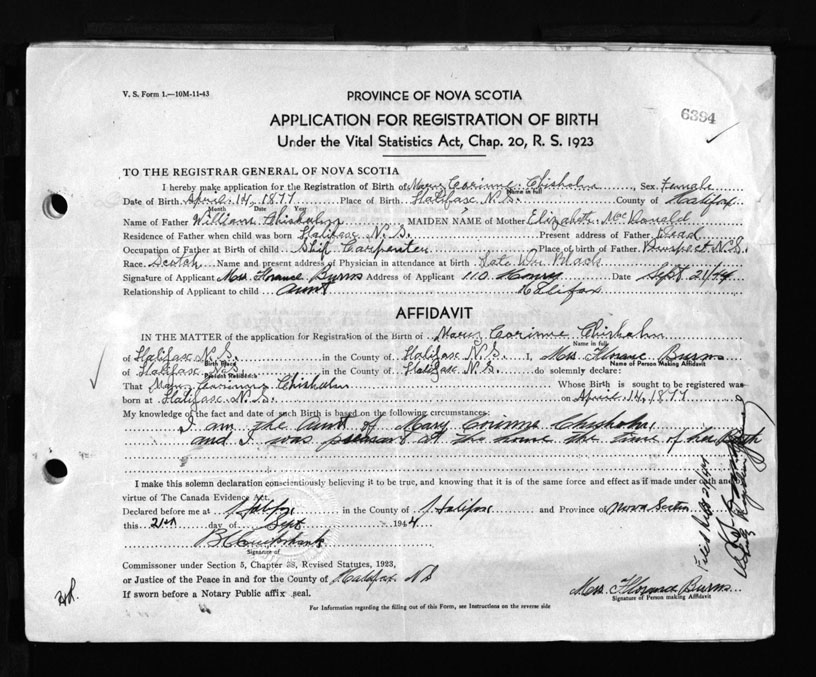 V. S. Form 1.—10M-11-43
PROVINCE OF NOVA SCOTIA
6394
APPLICATION FOR REGISTRATION OF BIRTH
Under the Vital Statistics Act, Chap. 20, R. S. 1923
TO THE REGISTRAR GENERAL OF NOVA SCOTIA
I hereby make application for the Registration of Birth of Mary Corinne Chisholm, Sex Female
Name in full
Date of Birth April 14, 1877 Place of Birth Halifax N.S. County of Halifax
Month Date Year
Name of Father William Chisholm MAIDEN NAME of Mother Elizabeth McDonald
Residence of Father when child was born Halifax N.S. Present address of Father Dead
Occupation of Father at Birth of child Ship Carpenter Place of birth of Father Prospect N.S.
Race Scotch Name and present address of Physician in attendance at birth Late Wm
Signature of Applicant Mrs. Florance Burns Address of Applicant 110 Henry Date Sept 21/44
Relationship of Applicant to child Aunt Halifax
AFFIDAVIT
IN THE MATTER of the application for Registration of the Birth of Mary Corinne Chisholm
Name in full
of Halifax N.S. in the County of Halifax N.S. I, Mrs. Florance Burns
Birth Place
Name of Person Making Affidavit
of Halifax N.S. in the County of Halifax N.S. do solemnly declare:
Present Residence
That Mary Corinne Chisholm Whose Birth is sought to be registered was
born at Halifax N.S. on April 14, 1877
My knowledge of the fact and date of such Birth is based on the following circumstances:
I am the Aunt of Mary Corinne Chisholm,
and I was present at the house the time of her Birth
I make this solemn declaration conscientiously believing it to be true, and knowing that it is of the same force and effect as if made under oath and
virtue of The Canada Evidence Act.
Declared before me at Halifax in the County of Halifax and Province of Nova Scotia
this 21st day of Sept 1944
Signature of
Commissioner under Section 5, Chapter 38, Revised Statutes, 1923,
or Justice of the Peace in and for the County of Halifax NS
If sworn before a Notary Public affix seal.
Mrs. Florance Burns
Signature of Person making Affidavit
For Information regarding the filling out of this Form, see Instructions on the reverse side